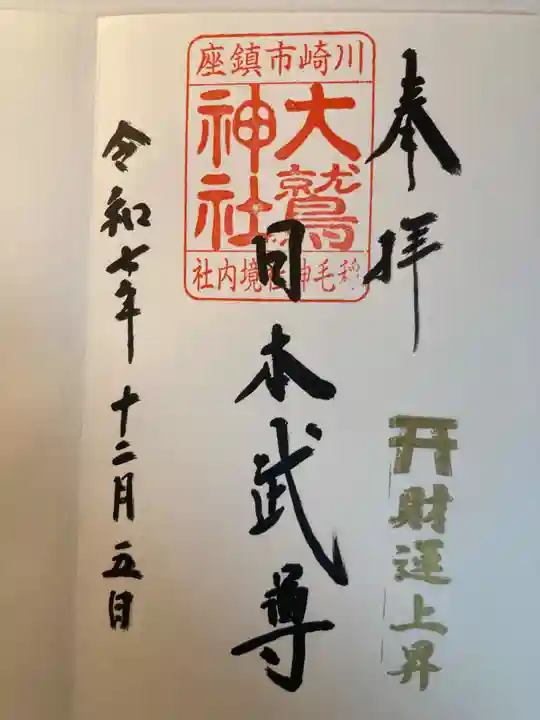 奉拝
財運上昇
川崎市鎮座
大鷲神社
稲毛神社境内社
日本武尊
令和七年十二月五日